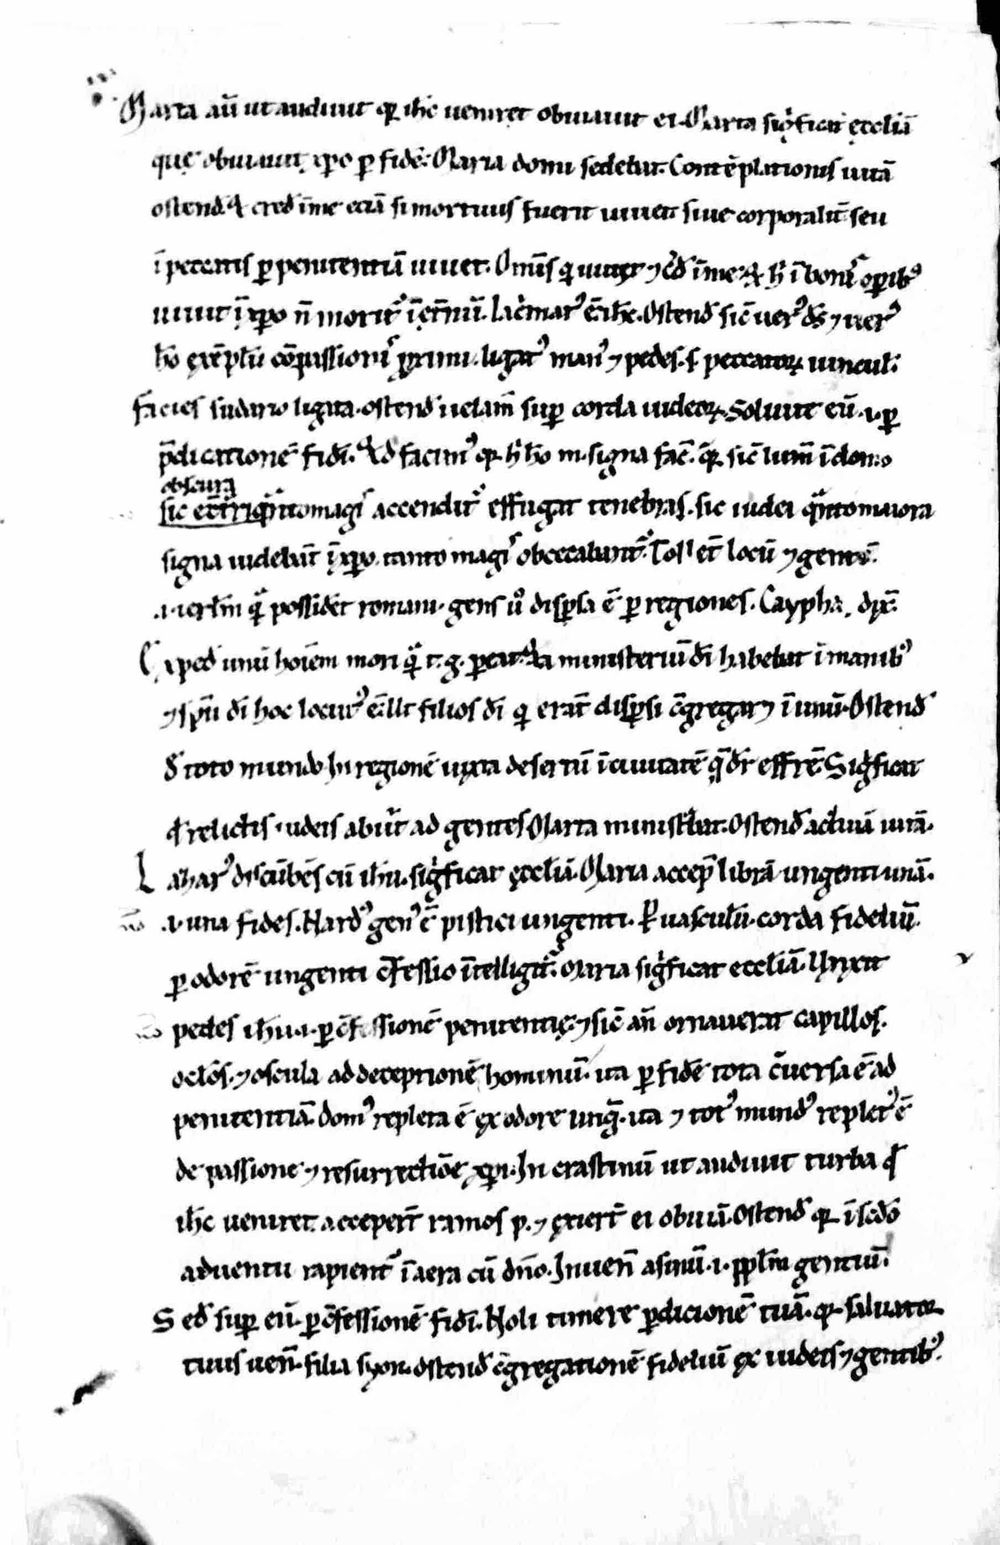 Marta aū ut audiuit qр ih̄c ueniret obuiauit ei. Marta sigͥficat ęccliā
quę obuiauit xp̄o ꝑ fidē. Maria domi sedebat. Contēplationis uitā
ostend̄. Qͥ cred̄ ī me etiā si mortuus fuerit uiuet siue corporalit̄ seu
ī peccatis ꝑ penitentiā uiuet. Om̄is qͥ uiuit ⁊ c̄d̄ ī me. qͥ hͥ ī boniˢ oꝑibꝰ
uiuit ī xp̄o n̄ moritᷣ ī et̄nū. Lac̄matꝰ ē ih̄c. Ostend̄ sic̄ uerꝰ dꝰ ⁊ uerꝰ
ho ęxēplū cōpassioniˢ ꝓximi. ligatꝰ manꝰ ⁊ pedes. s. peccatoꝝ uincul̄.
facies sudario ligata. ostend̄ uelam̄ suꝑ corda iudeoꝝ. Soluite eū .i. ꝑ
p̄dicationē fidī. Qͥd facimꝰ qр hͥ ho m̄. signa fac̄. qр sic̄ lum̄ ī domo
obscura
sic et̄ qᷓnto magiˢ accenditᷣ effugat tenebras. sic iudei qᷓnto maiora
signa uidebāt ī xp̄o. tanto magiˢ obcecabantᷣ. Toll̄et locū ⁊ gentē.
.i. ierl̄m qᷓ possidēt romani. gens u̾o disꝑsa ē ꝑ regiones. Cayphas dix̄.
Exped̄ unū hoīem mori qᷓ t. g. ꝑeat. Qͥa ministeriū dī habebat ī manibꝰ
⁊ sp̄u dī hoc locutꝰ ē. ut filios dī qͥ erāt disꝑsi c̄gregaret ī unū. Ostend̄
d̄ toto mundo. In regionē iuxta desertū ī ciuitatē qᷓ dr̄ effrē. Sigͥficat
qͩ relictis iudeis abiit ad gentes. Marta ministͣbat. Ostend̄ actiuā uitā.
Lazarꝰ discūbēs cū ih̄u. sigͥficat ęccliā. Maria accep̄ librā ungenti unā.
.i. una fides. Nardꝰ genꝰ ē pistici ungenti. Ꝑ uasculū. corda fideliū.
ꝑ odorē ungenti c̄fessio intelligitᷣ. Maria sigͥficat eccliā. Unxit
pedes ih̄u .i. ꝑ c̄fessionē penitentię. ⁊ sic̄ an̄ ornauerat capillos.
oclos. ⁊ oscula ad deceptionē hominū. ita ꝑ fidē tota c̄uersa ē ad
penitentiā. domꝰ repleta ē ęx odore ung̅. ita ⁊ totꝰ mundꝰ repletꝰ ē
de passione ⁊ resurrectiōe xp̄i. In crastinū ut audiuit turba qͩ
ih̄c ueniret acceper̄t ramos p. ⁊ ęxier̄t ei obuiā. Ostend̄ qр ī sc̄do
aduentu rapientᷣ ī aera cū dn̄o. Inuen̄ asinū .i. ppl̄m gentiū.
Sed̄ suꝑ eū. ꝑ c̄fessionē fidī. Noli timere ꝑdicionē tuā. qр saluator
tuus uen̄. filia syon. ostend̄ c̄gregationē fideliū ęx iudeis ⁊ gentibꝰ.